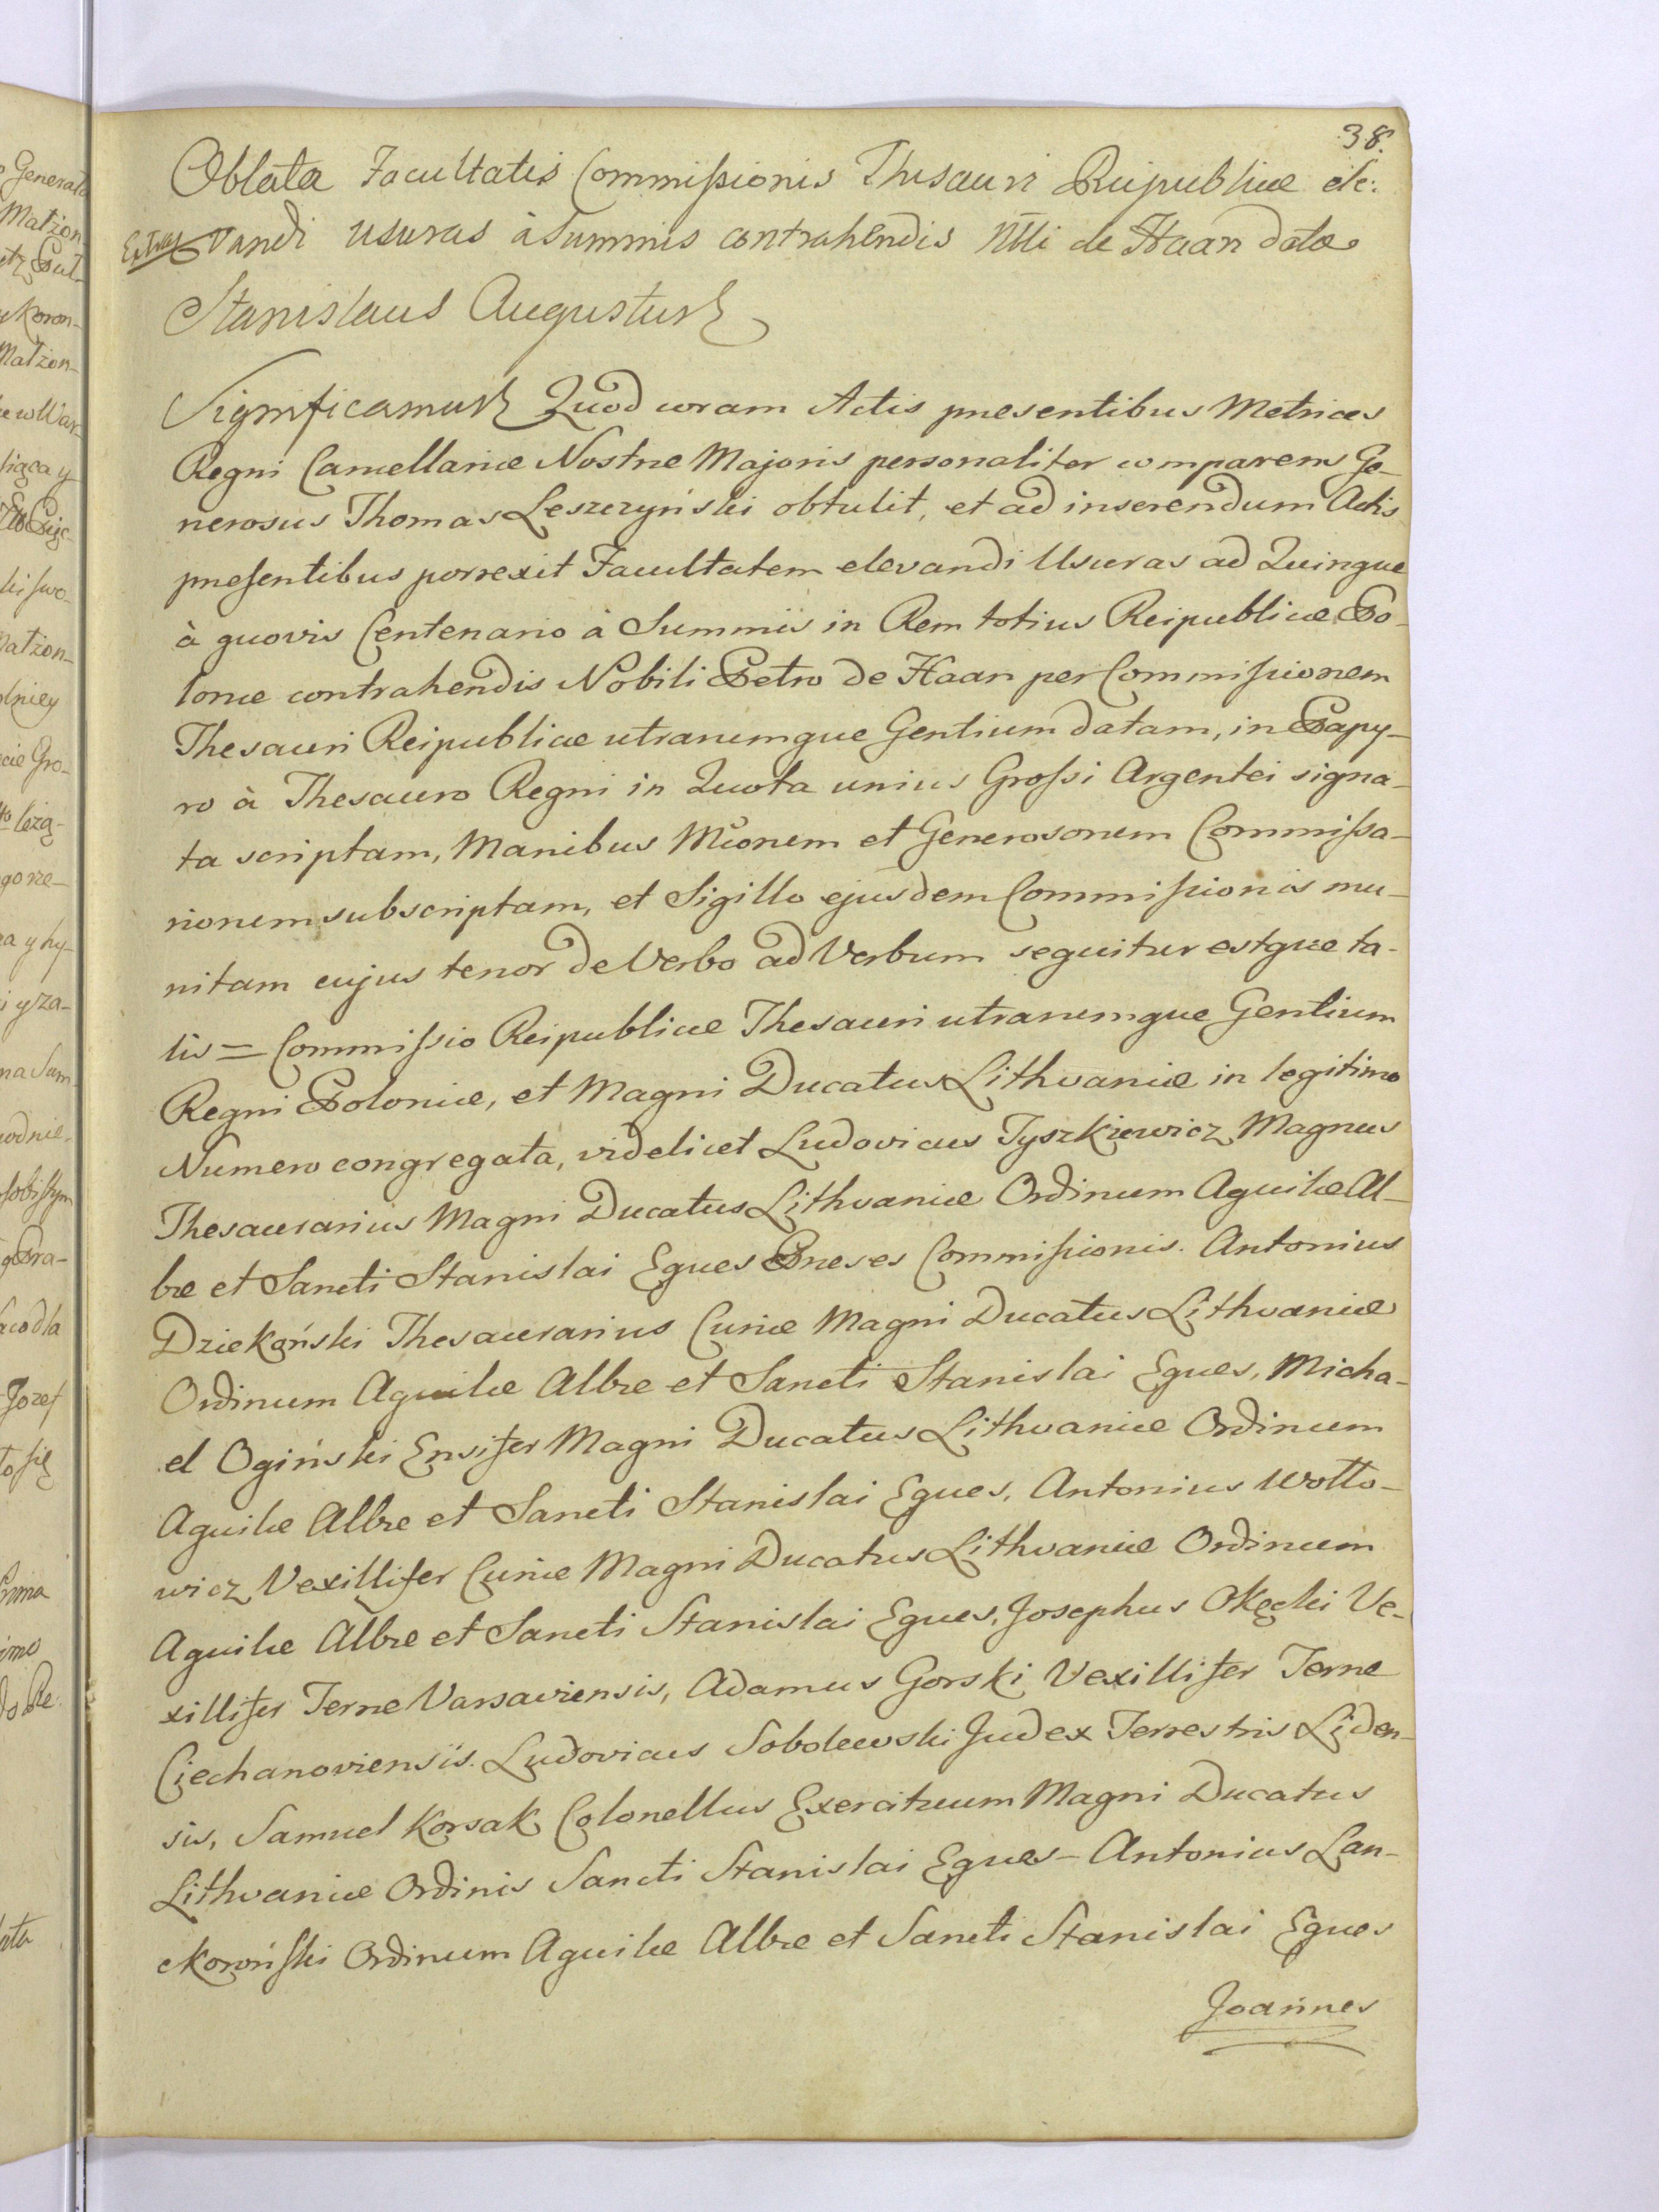 38.
Oblata Facultatis Commissionis Thesauri Reipublicæ ele:
vandi usuras à Summis contrahendis Nbli de Haan data
Stanislaus Augustus
Significamus Quod coram Actis præsentibus Metrices
Regni Cancellariæ Nostræ Majoris personaliter comparens Ge-
nerosus Thomas Leszczyński obtulit, et ad inserendum Actis
præsentibus porrexit Facultatem elevandi Usuras ad Quinque
à quovis Centenario à Summis in Rem totius Reipublicæ Po-
lonæ contrahendis Nobili Petro de Haan per Commissionem
Thesauri Reipublicæ utrarumque Gentium datam, in Papy-
ro à Thesauro Regni in Quota unius Grossi Argentei signa-
ta scriptam, Manibus Mcorum et Generosorum Commissa-
riorum subscriptam, et Sigillo ejusdem Commissionis mu-
nitam cujus tenor de Verbo ad Verbum sequitur estque ta-
lis = Commissio Reipublicæ Thesauri utrarumque Gentium
Regni Poloniæ, et Magni Ducatus Lithvaniæ in legitimo
Numero congregata, videlicet Ludovicus Tyszkiewicz Magnus
Thesaurarius Magni Ducatus Lithvaniæ Ordinum Aquilæ Al-
bæ et Sancti Stanislai Eques Præses Commissionis. Antonius
Dziekoński Thesaurarius Curiæ Magni Ducatus Lithvaniæ
Ordinum Aquilæ Albæ et Sancti Stanislai Eques, Micha-
el Ogiński Ensifer Magni Ducatus Lithvaniæ Ordinum
Aquilæ Albæ et Sancti Stanislai Eques, Antonius Wotto-
wicz Vexillifer Curiæ Magni Ducatus Lithvaniæ Ordinum
Aquilæ Albæ et Sancti Stanislai Eques, Josephus Okęcki Ve-
xillifer Terræ Varsaviensis, Adamus Gorski Vexillifer Terræ
Ciechanoviensis. Ludovicus Sobolewski Judex Terrestris Liden-
sis, Samuel Korsak Colonellus Exercituum Magni Ducatus
Lithvaniæ Ordinis Sancti Stanislai Eques - Antonius Lan-
ckoroński Ordinum Aquilæ Albæ et Sancti Stanislai Eques
Joannes